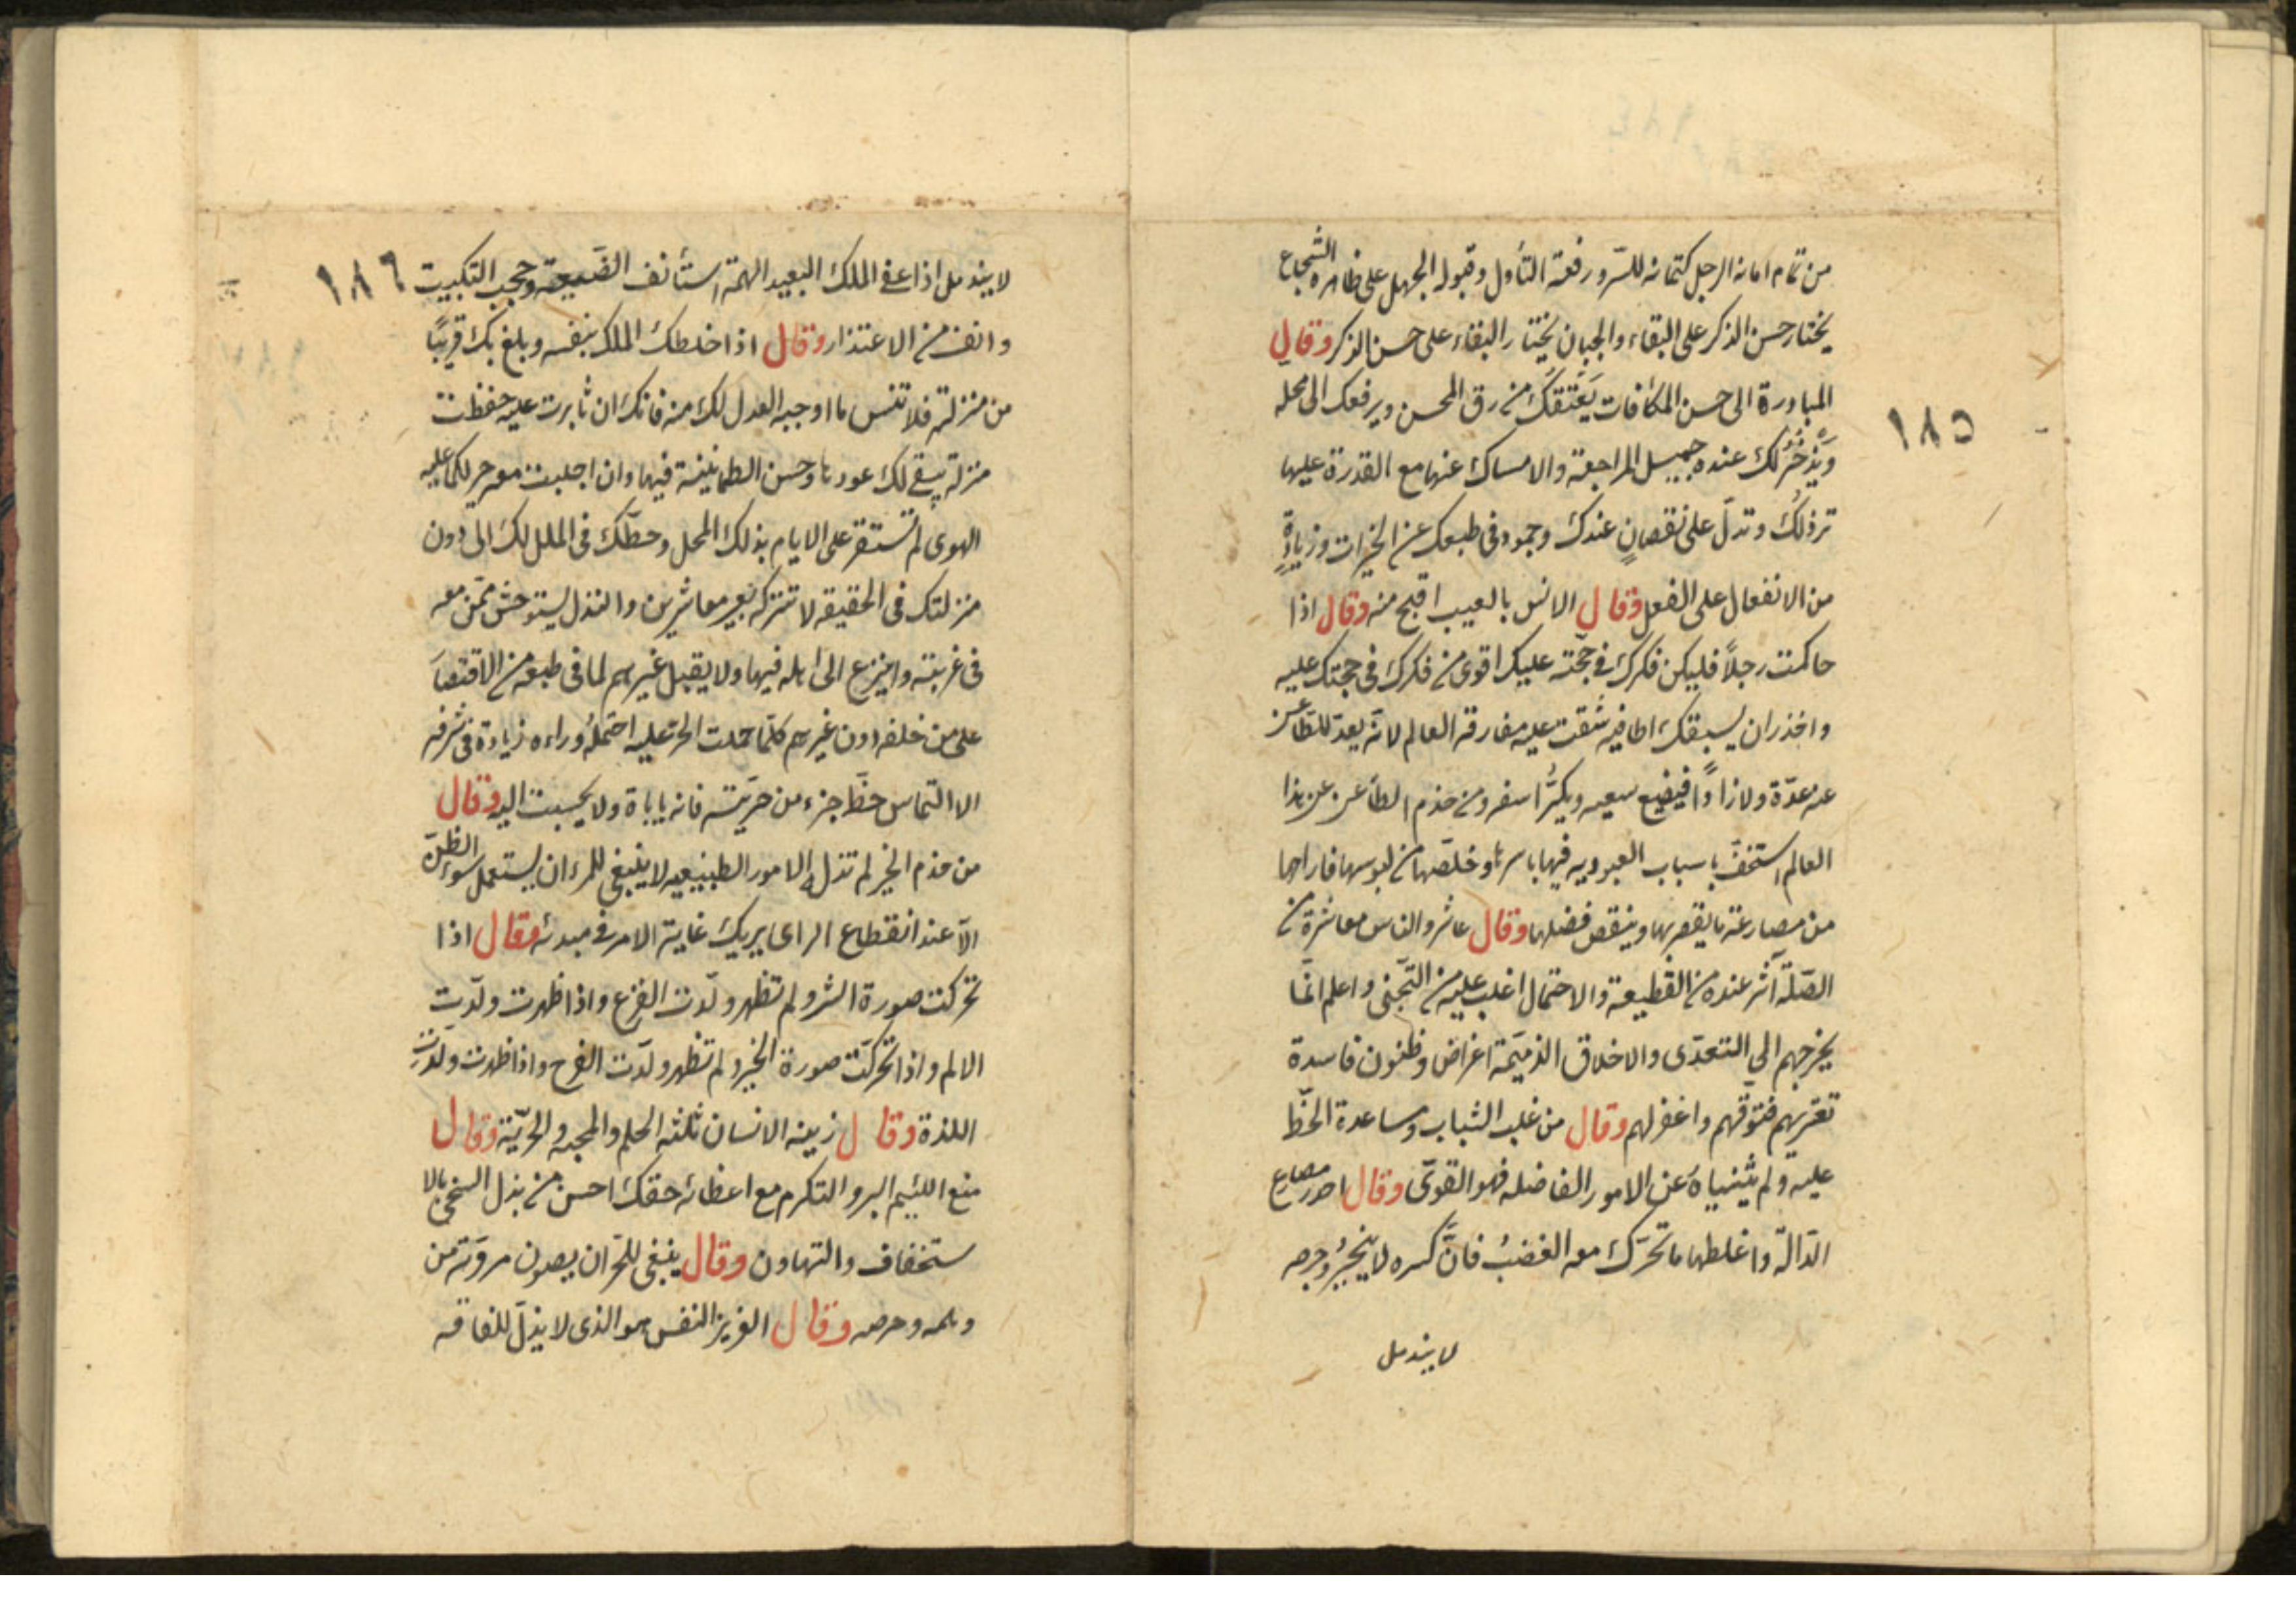 من تمام امانه الرجل كتمانه للسّر ورفعة التأول وقبوله الجهل على ظاهره الشجاع
يختار حسن الذكر على البقاء والجبان يختار البقاء على حسن الذكر وقال
المبادرة الى حسن المكافات يَعْتقكَ من رق المحسن ويرفعك الى محله
١٨٥
وَيذخُر لك عنده جميل المراجعة والامساك عنها مع القدرة عليها
ترذلكَ وتدلّ على نقصانٍ عندك وجمود فى طبعك عن الخيرات وزيادةٍ
من الانفعال على الفعل وقال الانس بالعيب اقبح منه وقال اذا
حاكمت رجلاً فليكن فكرك فى حجّته عليك اقوى من فكرك فى حجتك عليه
واحذر ان يسبقك شقت عليه مفارقه العالم لانّه يعدّ للظّاعن
عنه عدّة ولا زاداً فيضيع سعيه سفره ومن خدم عن هذا
العالم استخفّ باسباب العبوديه فيها باسرها وخلّصها من لبوسها فاراحها
من مصارعة ما يقصر بها وينقص فضلها وقال عاشروا الناس معاشرة من
الصّلة آثر عنده من القطيعة والاحتمال اغلب عليه من التّجنى واعلم انّما
يخرجهم الى التعدّى والاخلاق الذميّمة اغراض وظنون فاسدة
تعتريهم فتوقّهم واغفر لهم وقال من غلب الشباب ومساعدة الحظّ
عليه ولم يثنياهُ عن الامور الفاضله فهو القوىّ وقال احذر مصارع
الدّالّة واغلظها ما تحرّك معه الغضبُ فانّ كسره لا ينجبرُ وجرحه
لا يندمل
لا يندمل اذا عفى الملك البعيد الهمة استأنف الصّنيعة وحجب التبكيت
١٨٦
وانف من الاعتذار وقال اذا خلطك الملك بنفسه وبلغ بك قريبًا
من منزلته فلا تنس ما اوجبه العدل لك منه فانك ان ثابرت عليه حفظت
منزلة يبقى لك عودها وحسن الطمانينة فيها وان اجلبت معه حركما عليه
الهوى لم تستقر على الايام بذلك المحل وحطّك فى الملل لك الى دون
منزلتك فى الحقيقه لا تتركه بعير معاشرين والنذل يستوحش ممّن معه
فى غربته وينزع الى اهله فيها ولا يقبل غيرهم لما فى طبعه من الاقتصار
على من خلفه دون غيرهم كلّما حملت الحرّ عليه احتملهُ وراءه زيادة فى شرفه
الا التماس حظّ جزء من حريّته فانه ياباة ولا يجيبت اليه وقال
من خدم الخير لم تذلّه الامور الطبيعيه لا ينبغى للمرء ان يستعمل سوء الظنّ
الّا عند انقطاع الراى يريك غاية الامر فى مبدئه وقال اذا
تحركت صورة الشر ولم تظهر ولّدت الفزع واذا ظهرت ولّدت
الالم واذا تحركّت صورة الخير ولم تظهر ولّدت الفرح واذا ظهرت ولّدت
اللذة وقال زينه الانسان ثلثه الحلم والمحبه والحريّة وقال
منع اللئيم البر والتكرم مع اعطائه حقك احسن من بذل السخى بالا
ستخفاف والتهاون وقال ينبغى للحرّ ان يصون مروّته من
وهمه وحرصه وقال العزيز النفس هو الذى لا يذلّ للفاقه